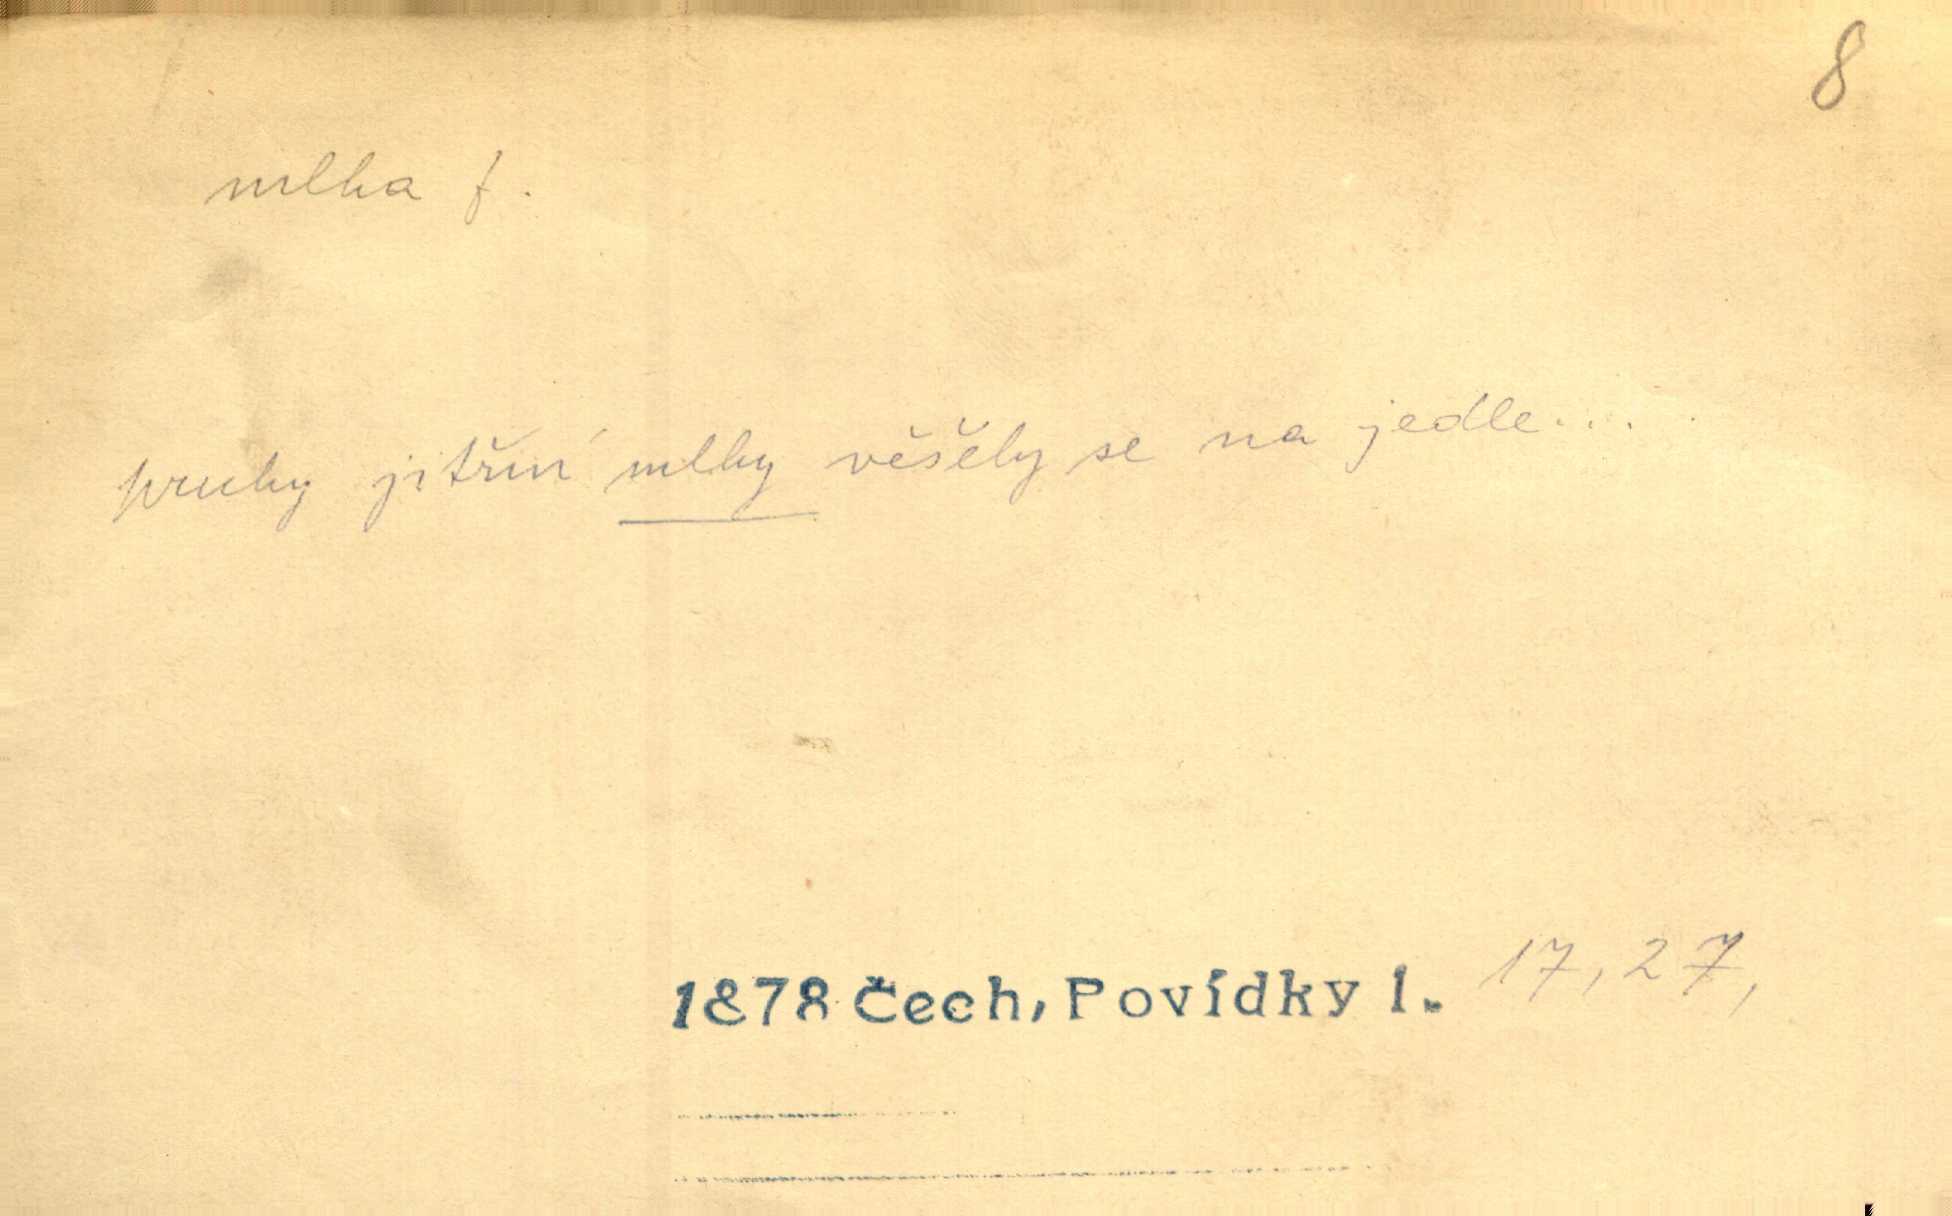 8
mlha f.
pruhy jitřní mlhy věšely se na jedle....
1878 Čech, Povídky 1. 17, 27,